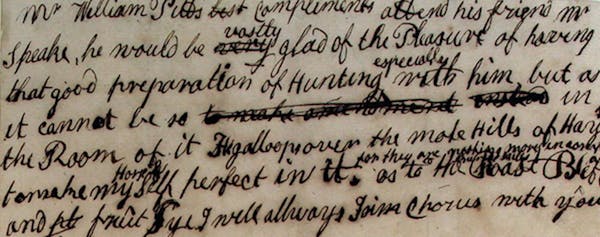 Mr William Pitts best Compliments attend his friend Mr
Speake, he would be very vastly glad of the Pleasure of having
that good preparation of Hunting especially with him, but as
it cannot be so to make amendment in
the Room of it He gallops over the mole Hills of Hay
to make Hors myself perfect in it. for they are nothing more in as to the Roast Bif
and fruit Pye I will allways Join Chorus with you